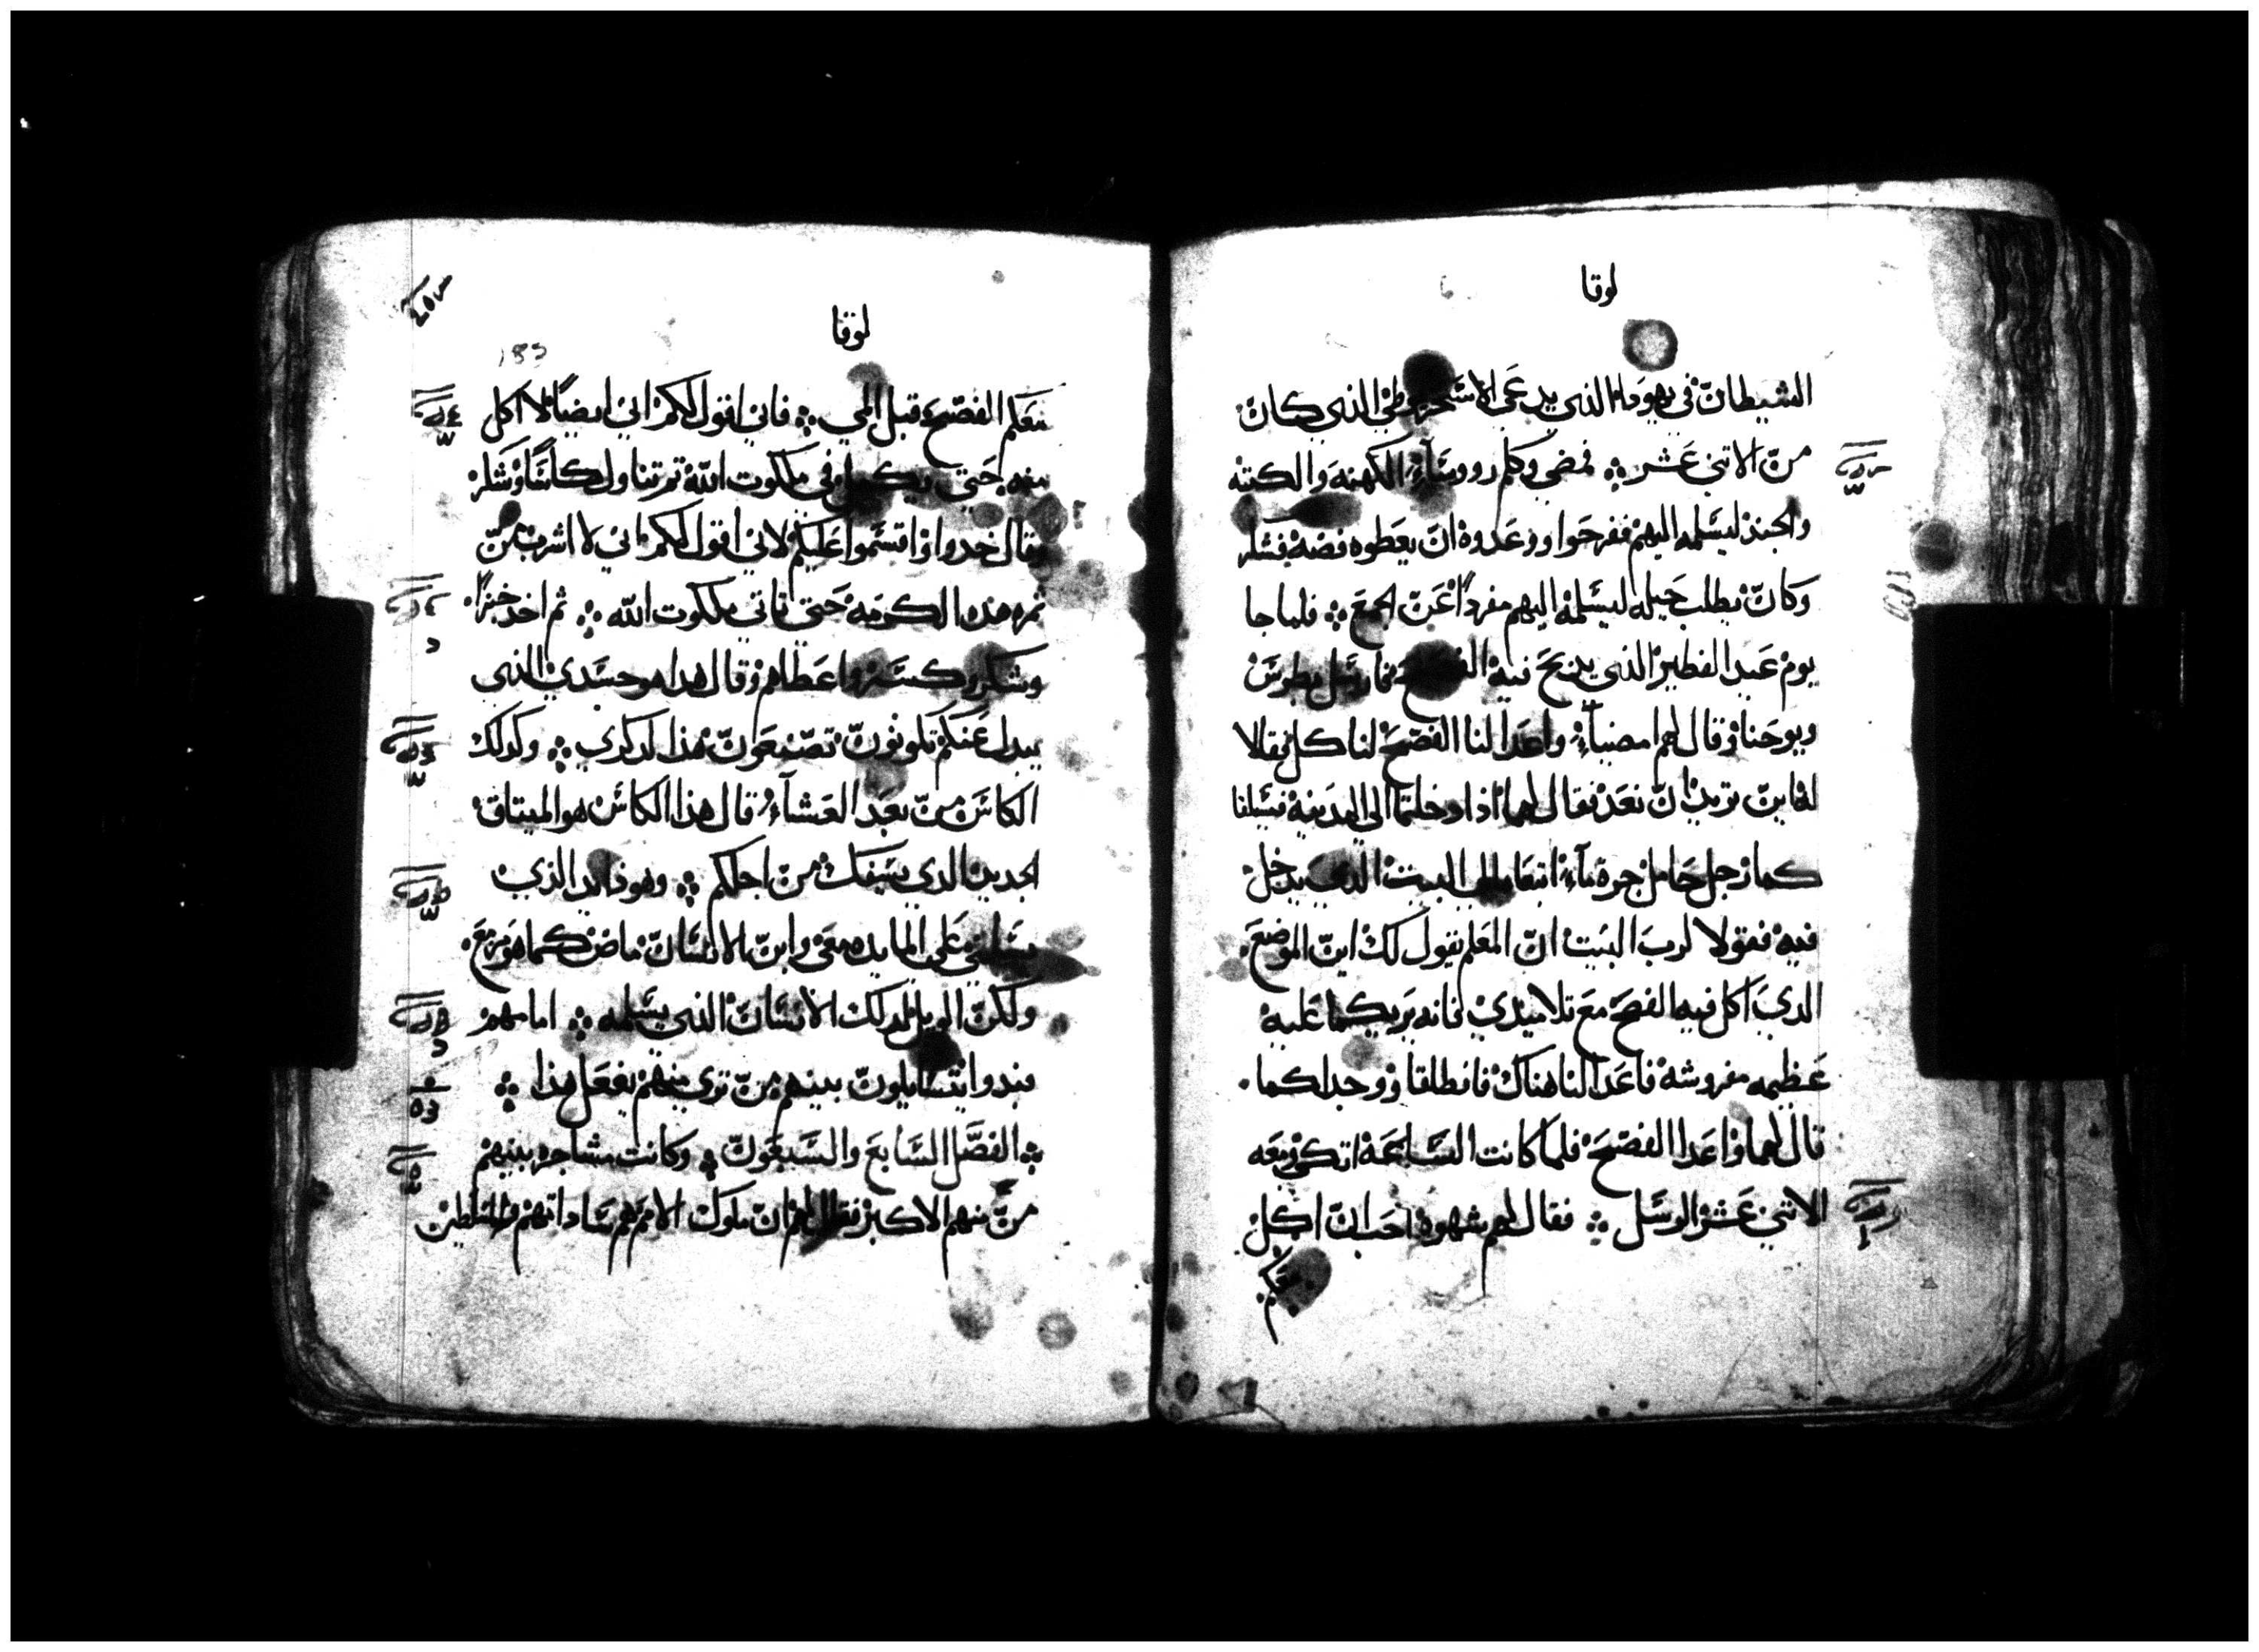 لوقا
الشيطان في يهودا الذي يدعي الاسخريوطي الذي كان
من الاتني عشر فمضي وكلم رووساء الكهنه والكتبه
والجند ليسلمه اليهم ففرحوا ووعدوه ان يعطوه فضه فشكر
وكان يطلب حيله ليسلمه اليهم مفرداً عن الجمع فلما جا
يوم عيد الفطير الذي يدبح فيه الفصح فارسل بطرس
ويوحنا وقال لهم امضياء واعدا لنا الفصح لناكل فقالا
له اين تريد ان نعد فقال لهما اذا دخلتما الي المدينه فسيلقا
كما رجل حامل جرة ماء اتبعاه الي البيت الدي يدخل
فيه فقولا لرب البيت ان المعلم يقول لك اين الموضع
الدي اكل فيه الفصح مع تلاميذي فانه يريكما عليه
عظيمه مفروشه فاعدا لنا هناك فانطلقا ووجدا كما
قال لهما واعدا الفصح فلما كانت الساعة اتكي ومعه
الاثني عشر الرسل فقال لهم شهوة احب ان اكل
معكم
لوقا
183
معكم الفصح قبل المي فاني اقول لكم اني ايضاً لا اكل
منه حتي يكمل في ملكوت الله تم تناول كاساً وشكر
وقال خدوا واقتسموا عليكم لاني اقول لكم اني لا اشرب من
ثمره هذه الكرمه حتي تاتي ملكوت الله ثم اخد خبزاً
وشكر وكسر واعطاهم وقال هدا هو جسدي الذي
يبدل عنكم تكونون تصنعون هذا لدكري وكدلك
الكاس من بعد العشاء قال هذا الكاس هو الميتاق
الجديد الدي يسفك من اجلكم وهوذا يد الذي
يسلمني علي المايده معي وابن الانسان ماض كما هو مزمع
ولكن الويل لدلك الانسان الذي يسلمه اما هم
فبدوا يتسايلون بينهم من تري منهم يفعل هذا
الفصل السابع والسبعون وكانت مشاجره بينهم
من منهم الاكبر فقال لهم ان ملوك الامم هم ساداتهم والمسلطين